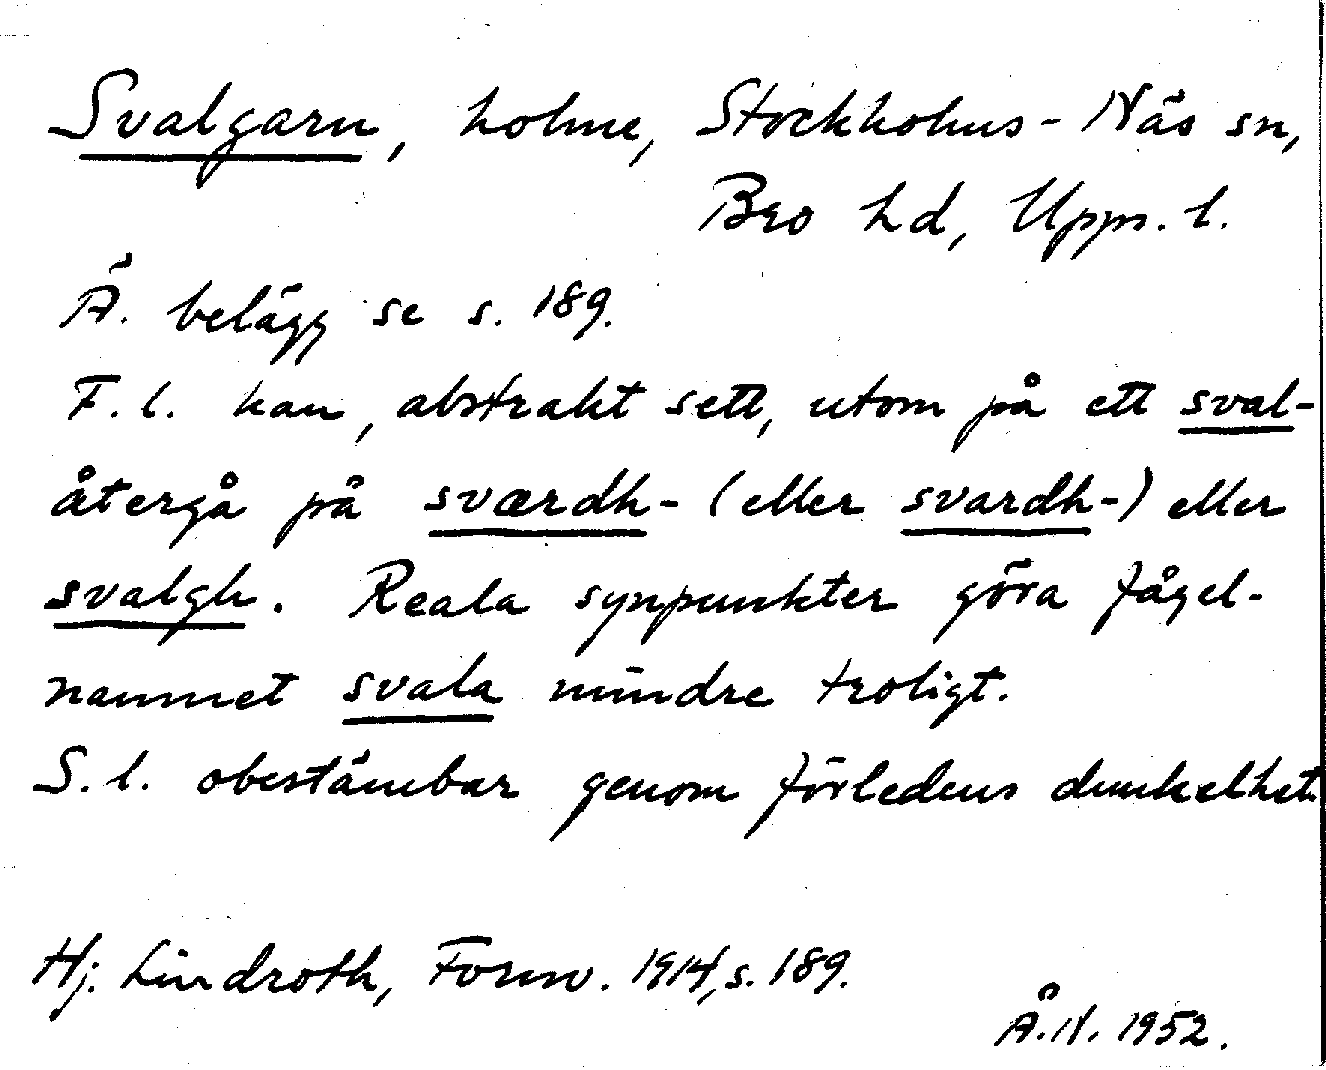 Svalgarn, holme, Stockholms-Näs sn,
Bro hd, Upps. l.
Ä. belägg se s. 189.
F.l. kan, abstrakt sett, utom på ett sval-
återgå på sværdh- (eller svardh-) eller
svalgh. Reala synpunkter göra fågel-
namnet svala mindre troligt.
S.l. obestämbar genom förledens dunkelhet.
Hj. Lindroth, Fornv. 1914, s. 189.
Å.N. 1952.